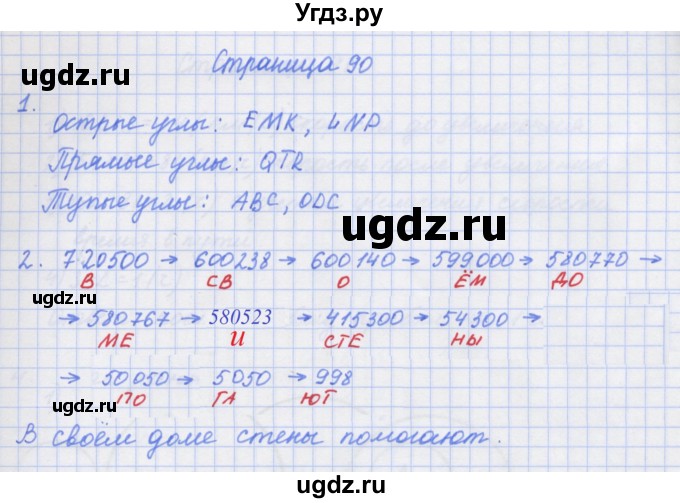 Угдз.ру
Страница 90
ugdz.ru ugdz.ru
1.
Острые углы: EMK, LNP
ugdz.ru
Прямые углы: QTR
Тупые углы: ABC, ODC
ugdz.ru
2. 720500 → 600238 → 600140 → 599000 → 580770 →
В СВ О ЁМ ДО
ugdz.ru
→ 580767 → 580523 → 415300 → 54300 →
МЕ И СТЕ НЫ
ugdz.ru
→ 50050 → 5050 → 998
ПО ГА ЮТ
ugdz.ru
В своём доме стены помогают.
ugdz.ru
Угдз.ру